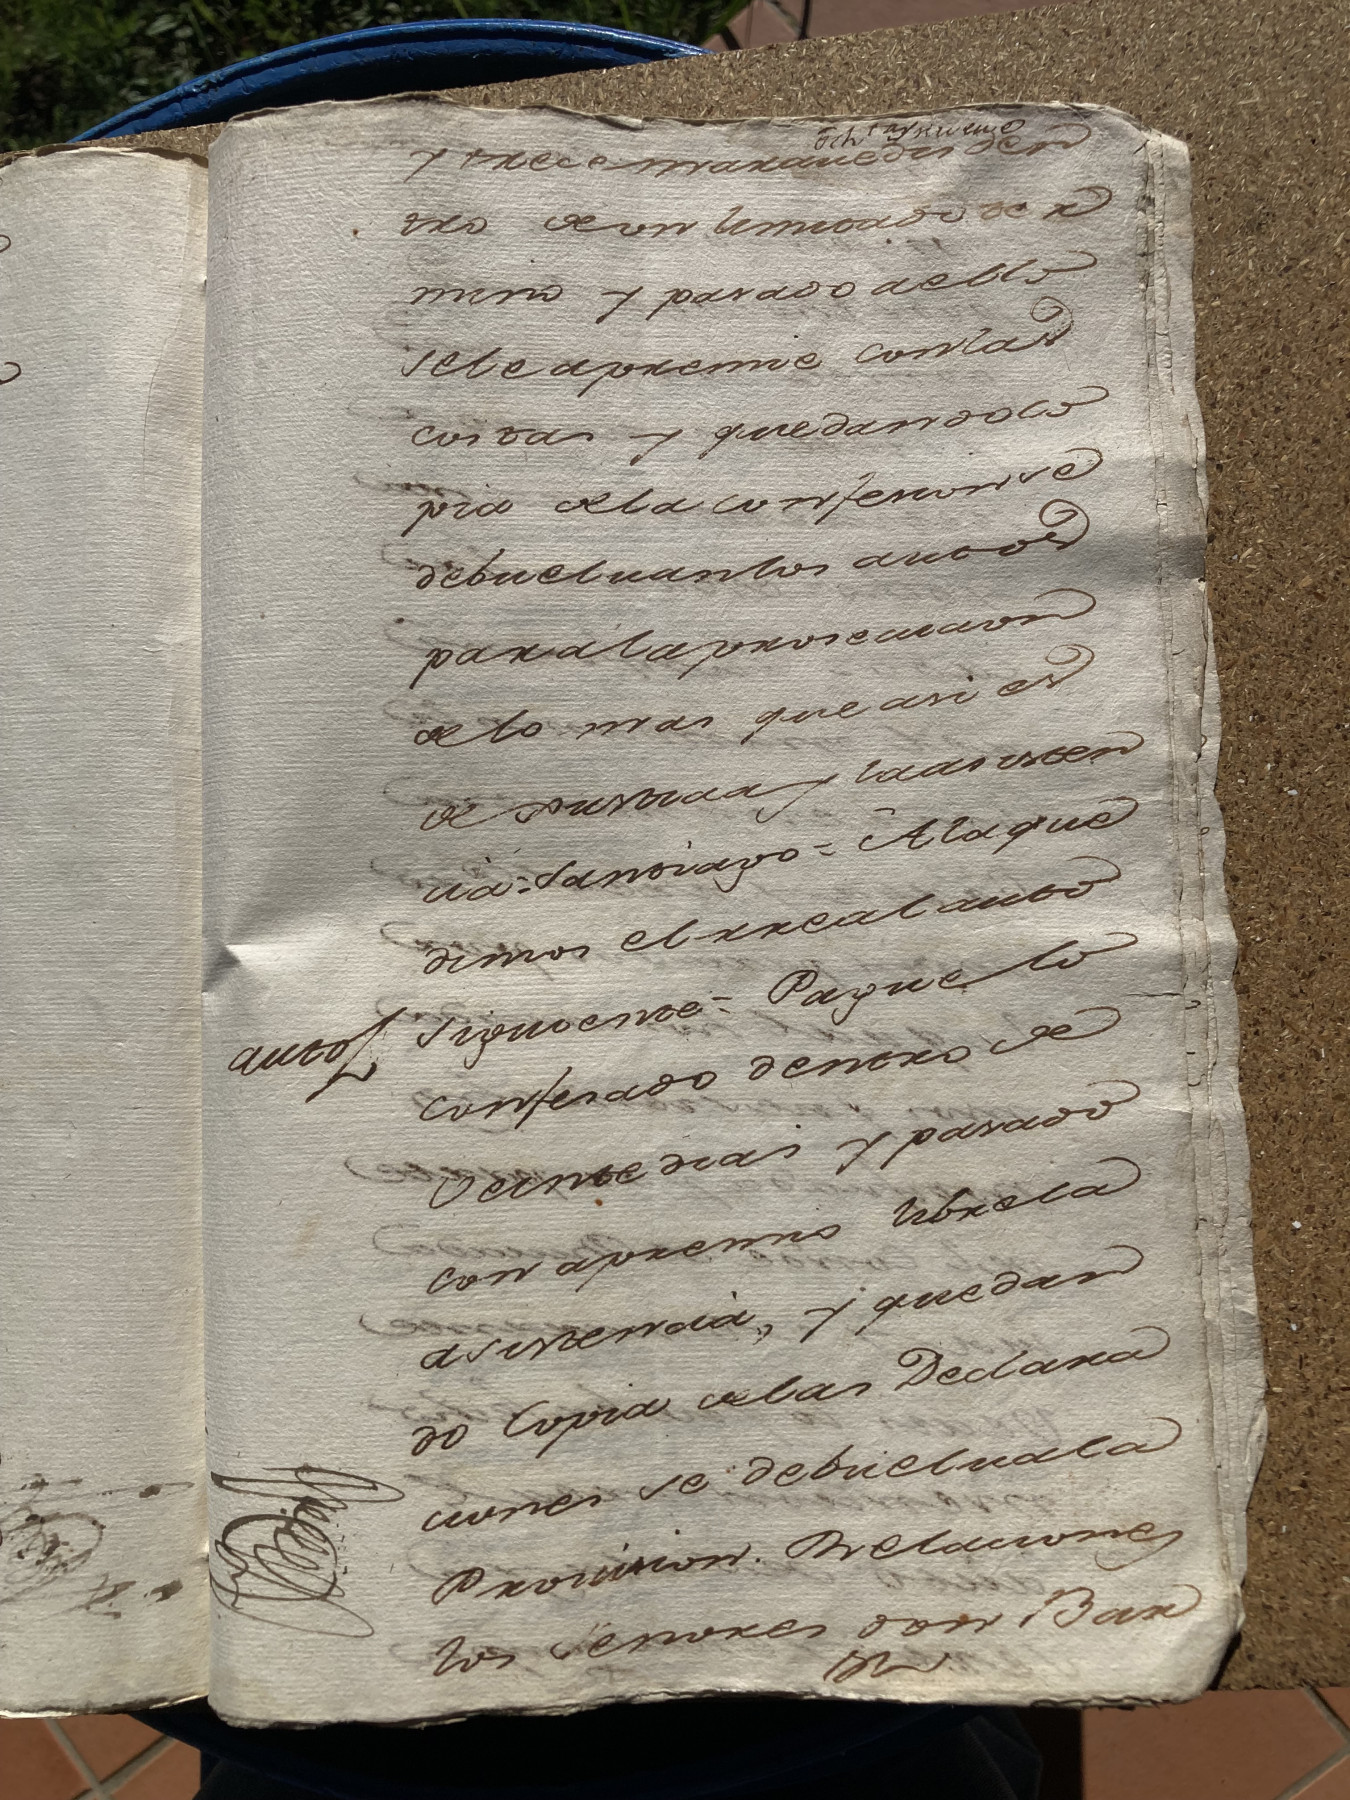 y trece maravedis den
tro de un limitado ter
mino y pasado dello
se le apremie con las
costas y quedando co
pia de la confesion se
debuelvan los autos
para la prosecucion
de lo mas que asi es
de Justicia y la asisten
cia = Santiago = A la que
dimos el rreal auto
siguiente = Pague lo
auto
confesado dentro de
Veinte dias y pasado
con apremio librela
asistencia, y quedan
do Copia de las Declara
ciones se debuelva la
Provision. Relaciones
los señores don Bar